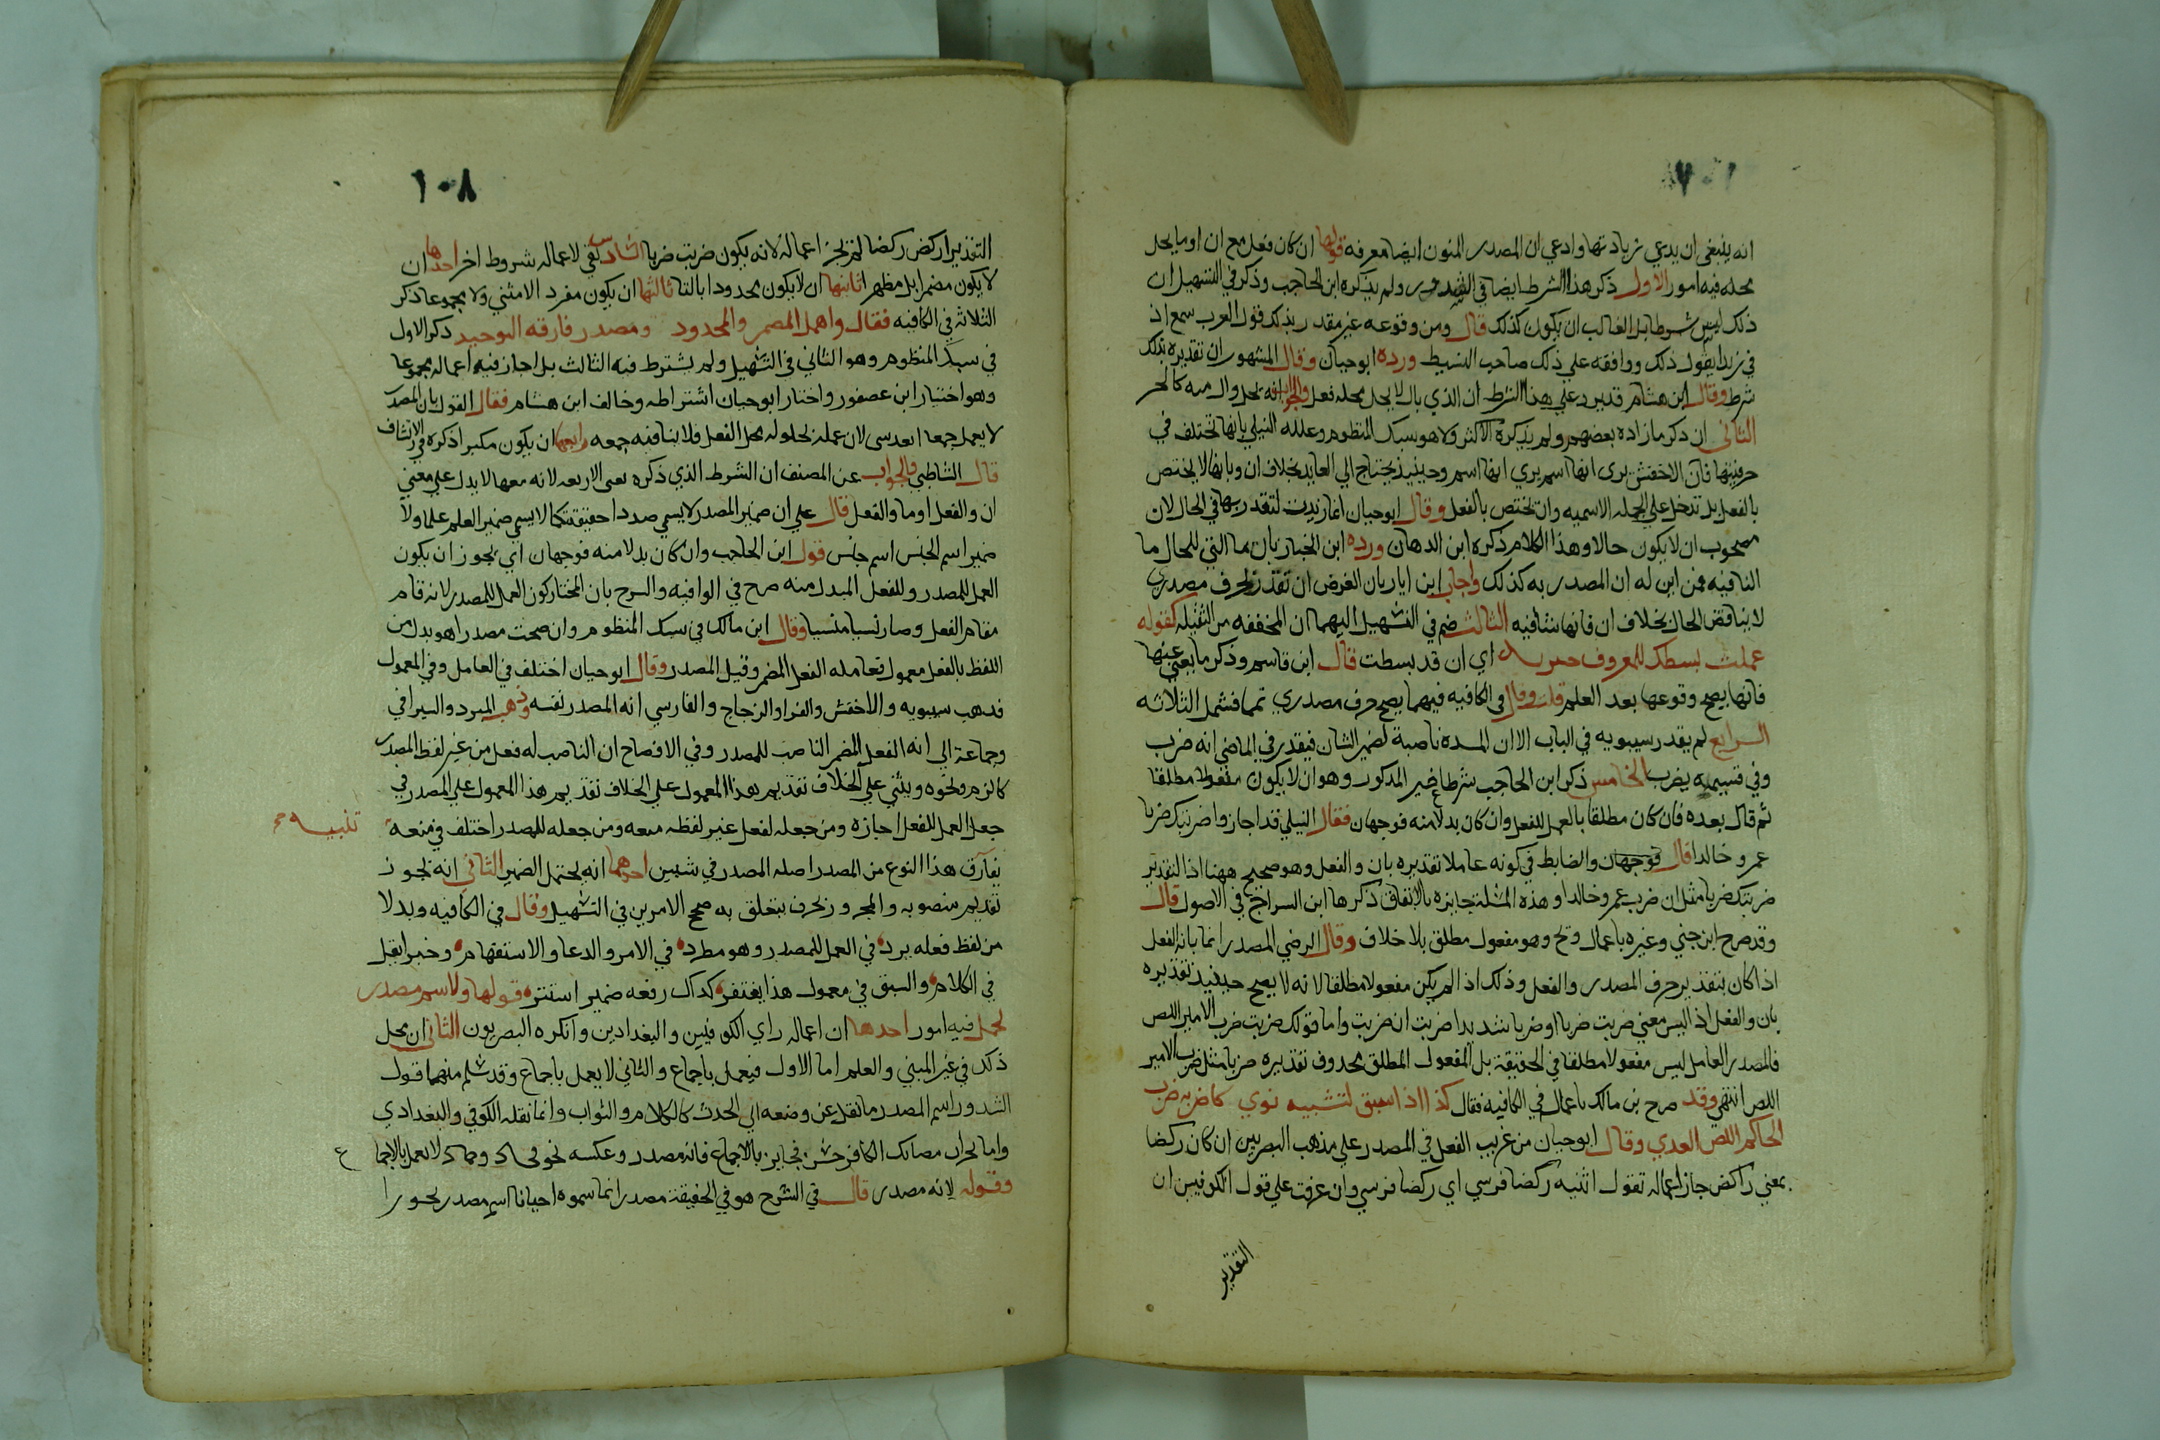 ١٠٧
انه ينبغي ان يدعي زيادتها وادعي ان المصدر المنون ايضا معرفه قولها ان كان فعل مع ان او ما يحل
محله فيه امور الاول ذكر هذا الشرط ايضا في الشذور ولم يذكره ابن الحاجب وذكر في التسهيل ان
ذلك ليس شرطا بل الغالب ان يكون كذلك قال ومن وقوعه غير مقدر بذلك قول العرب سمع اذ
في زيدا يقول ذلك ووافقه علي ذلك صاحب البسيط ورده ابوحيان وقال المشهور ان تقديره بذلك
شرط وقال ابن هشام قد يرد علي هذا الشرط ان الذي بال لا يحل محله فعل والجواب انه يحل وال منه كالجر
الثاني ان ذكر ما زاده بعضهم ولم يذكره الاكثر ولا هو بسبك المنظوم وعلله النيلي بانها تختلف في
حرفيتها فان الاخفش يري انها اسم يري انها اسم وحينيذ يحتاج الي العايد بخلاف ان وبانها لا يختص
بالفعل بل تدخل علي الجمله الاسميه وان تختص بالفعل وقال ابوحيان انما زيدت لتقدر بها في الحال لان
مصحوب ان لا يكون حالا وهذا الكلام ذكره ابن الدهان ورده ابن الخباز بان ما التي للحال ما
النافيه فمن اين له ان المصدر به كذلك واجاب ابن اياز بان الغرض ان تقدر بحرف مصدري
لا يناقض الحال بخلاف ان فانها منافيه الثالث ضم في التسهيل اليهما ان المخففه من الثقيله كقوله
علمت بسطك للمعروف خير يد اي ان قد بسطت قال ابن قاسم وذكر ما يغني عنها
فانها يصح وقوعها بعد العلم قلت وقال في الكافيه فيهما يصح حرف مصدري تمما فشمل الثلاثه
الرابع لم يقدر سيبويه في الباب الا ان المشدده ناصبة لضمير الشان فيقدر في الماضي انه ضرب
وفي قسيميه يضرب الخامس ذكر ابن الحاجب شرطا غير المذكور وهو ان لا يكون مفعولا مطلقا
ثم قال بعده فان كان مطلقا بالعمل للفعل وان كان بدلا منه فوجهان فقال النيلي قد اجازوا ضربتك ضربا
عمر و خالدا قال فوجهان والضابط في كونه عاملا تقديره بان والفعل وهو صحيح ههنا اذ التقدير
ضربتك ضربا مثل ان ضرب عمر وخالدا و هذه المسئلة جايزه بالاتفاق ذكرها ابن السراج في الاصول قال
وقد صرح ابن جني وغيره باعمال وتح وهو مفعول مطلق بلا خلاف وقال الرضي المصدر انما بانه الفعل
اذا كان بتقدير حرف المصدر والفعل وذلك اذ الم يكن مفعولا مطلقا لانه لا يصح حينيذ تقديره
بان والفعل اذ ليس معني ضربت ضربا او ضربا شديدا ضربت ان ضربت واما قولك ضربت ضرب الامير اللص
فالمصدر العامل ليس مفعولا مطلقا في الحقيقة بل المفعول المطلق محذوف تقديره ضربا مثل ضرب الامير
اللص انتهي وقد صرح بن مالك باعمال في الكافيه فقال كذا اذا سبق لتشبيه نوي كاضربه ضرب
الحاكم اللص العدي وقال ابوحيان من غريب الفعل في المصدر علي مذهب البصريين ان كان ركضا
بمعني راكض جاز اعماله تقول اتيته ركضا فرسي اي ركضا فرسي وان عرفت علي قول الكوفيين ان
التقدير
١٠٨
التقدير اركض ركضا لم يجز اعماله لانه يكون ضربت ضربا السادس بقي لاعماله شروط اخر احدها ان
لا يكون مضمرا بل مظهرا ثانيها ان لا يكون محدودا بالتا ثالثها ان يكون مفرد الا مثني ولا مجموعا ذكر
الثلاثه في الكافيه فقال واهمل المضمر والمحدود ومصدر فارقه التوحيد ذكر الاول
في سبك المنظوم وهو الثاني في التسهيل ولم يشترط فيه الثالث بل اجاز فيه اعماله مجموعا
وهو اختيار ابن عصفور واختار ابوحيان اشتراطه وخالف ابن هشام فقال القول بان المصدر
لا يعمل جمعا بعد سي لان عمله بحلوله محل الفعل فلا ينافيه جمعه رابعها ان يكون مكبرا ذكره في الارتشاف
قال الشاطبي والجواب عن المصنف ان الشرط الذي ذكره يعني الاربعه لانه معها لا يدل علي معني
ان والفعل او ما والفعل قال علي ان ضمير المصدر لا يسمي مصدرا حقيقة كما لا يسمي ضمير العلم علما ولا
ضمير اسم الجنس اسم جنس قول ابن الحاجب وان كان بدلا منه فوجهان اي يجوز ان يكون
العمل للمصدر وللفعل المبدل منه صرح في الوافيه والشرح بان المختار كون العمل للمصدر لانه قام
مقام الفعل وصار نسيا منسيا وقال ابن مالك في سبك المنظوم وان صحت مصدرا هو بدل من
اللفظ بالفعل معمول فعامله الفعل المضمر وقيل المصدر وقال ابوحيان اختلف في العامل وفي المعمول
فذهب سيبويه والاخفش والفرا والزجاج والفارسي انه المصدر نفسه وذهب المبرد والسيرافي
وجماعة الي انه الفعل المضمر الناصب للمصدر وفي الافصاح ان الناصب له فعل من غير لفظ المصدر
كالزم ونحوه وينبني علي الخلاف تقديم هذا المعمول علي الخلاف تقديم هذا المعمول علي المصدر في
جعل العمل للفعل اجازه ومن جعله لفعل غير لفظه منعه ومن جعله للمصدر اختلف في منعه
تنبيه
يفارق هذا النوع من المصدر اصله المصدر في شيين احدهما انه يحتمل الضمير الثاني انه يجوز
تقديم منصوبه والمجرور بحرف يتعلق به صحح الامرين في التسهيل وقال في الكافيه وبدلا
من لفظ فعله يرد في العمل للمصدر وهو مطرد في الامر والدعا والاستفهام وخبرا يقل
في الكلام والسبق في معمول هذا يغتفر كذاك رفعه ضمير استتر قولها ولاسم مصدر
عمل فيه امور احدها ان اعماله راي الكوفيين والبغدادين وانكره البصريون الثاني ان محل
ذلك في غير الميمي والعلم اما الاول فيعمل باجماع والثاني لا يعمل باجماع وقد سلم منهما قول
الشذور اسم المصدر ما نقل عن وضعه الي الحدث كالكلام والثواب وانما نقله الكوفي والبغدادي
واما نحو ان مصابك الكافر حسن فجايز بالاجماع فانه مصدر وعكسه نحو فجار وحماد لا تعمل بالاجماع
وقوله لانه مصدر قال في الشرح هو في الحقيقة مصدر انما سموه احيانا اسم مصدر تجوزا